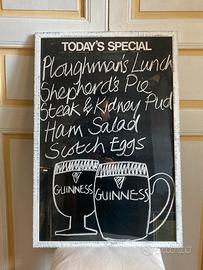 TODAY'S SPECIAL
Ploughman's Lunch
Shepherd's Pie
Steak & Kidney Pud
Ham Salad
Scotch Eggs
GUINNESS
GUINNESS